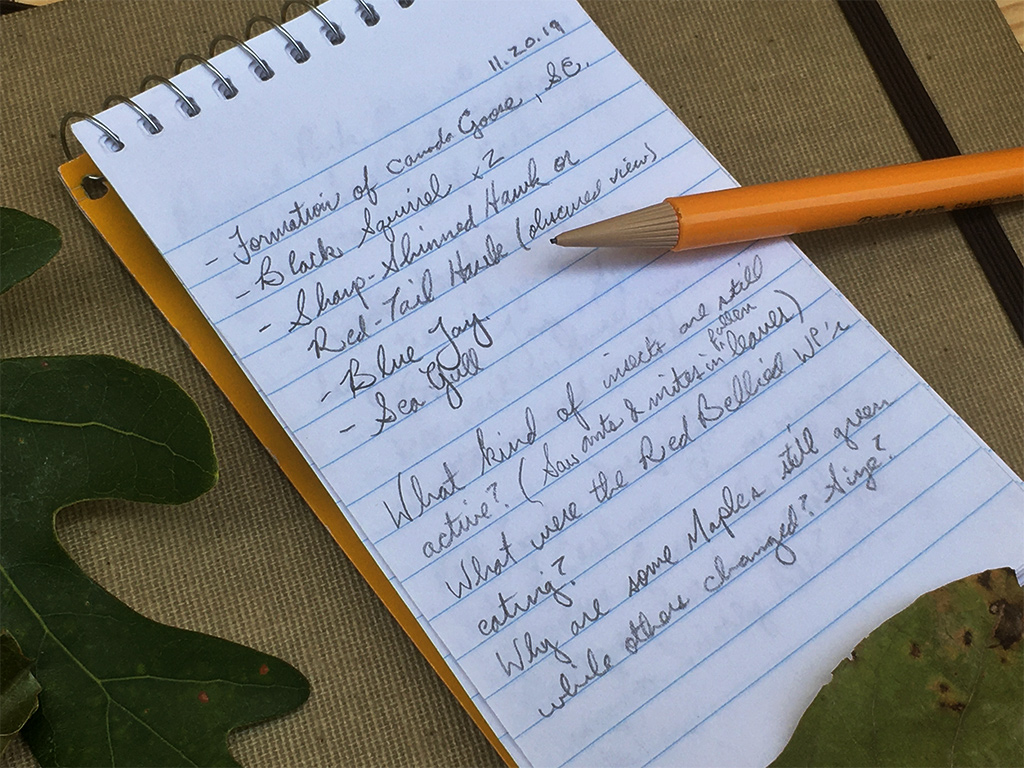 11.20.19
- Formation of Canada Goose, SE.
- Black Squirrel x2
- Sharp-Shinned Hawk or
Red-Tail Hawk (obscured view)
- Blue Jay
- Sea Gull
What kind of insects are still
active? (Saw ants & mites in fallen leaves)
What were the Red Bellied WP's
eating?
Why are some Maples still green
while others changed? Size?